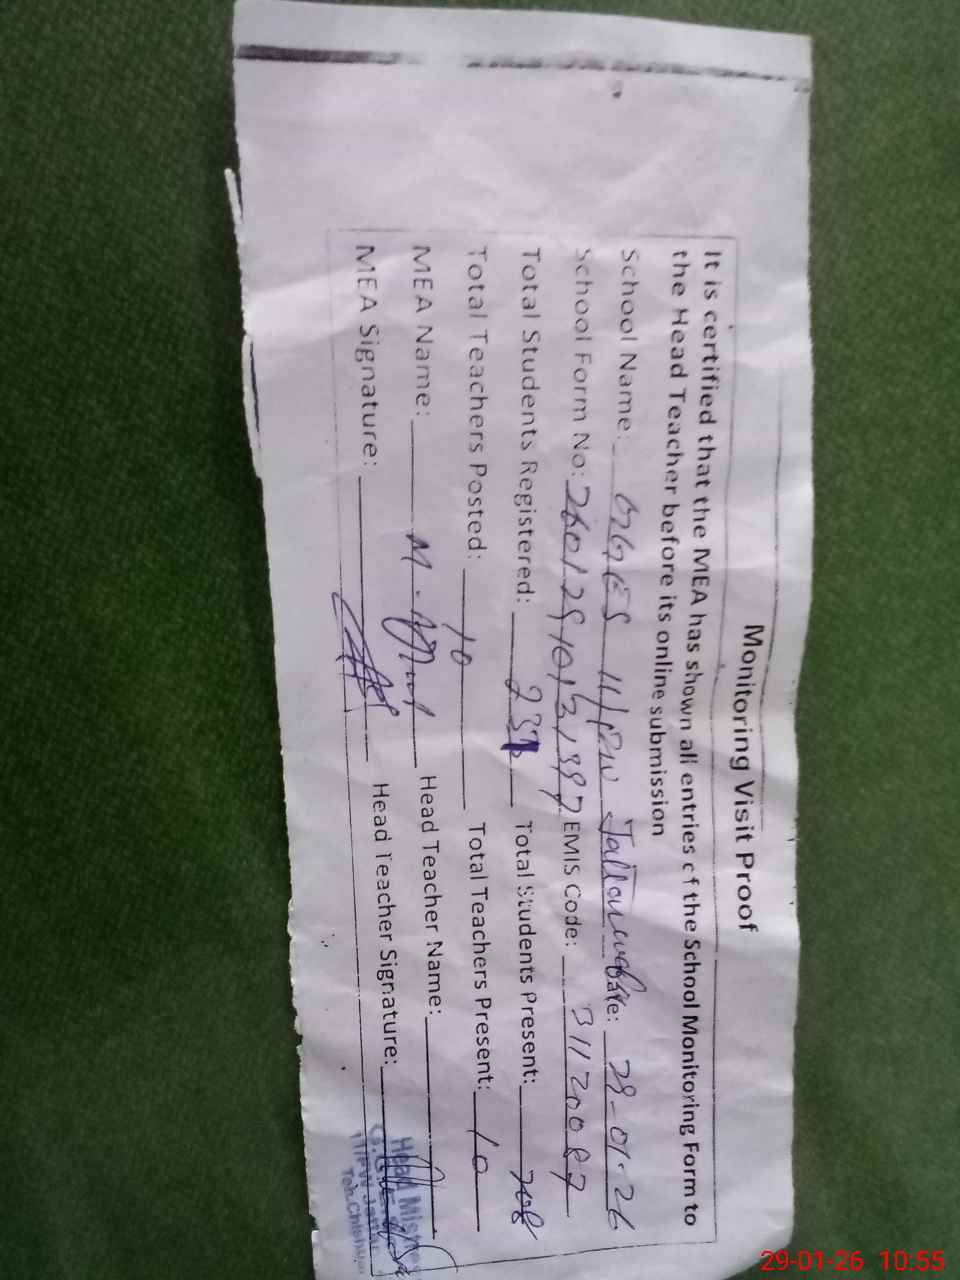 Monitoring Visit Proof
It is certified that the MEA has shown all entries of the School Monitoring Form to
the Head Teacher before its online submission
School Name: GGES 11/PW Date: 29-01-26
School Form No: EMIS Code: 31120087
Total Students Registered: Total Students Present: 208
Total Teachers Posted: 10 Total Teachers Present: 10
MEA Name: M. Head Teacher Name:
MEA Signature: Head Teacher Signature:
Head
11/PW
Teh.
29-01-26 10:55